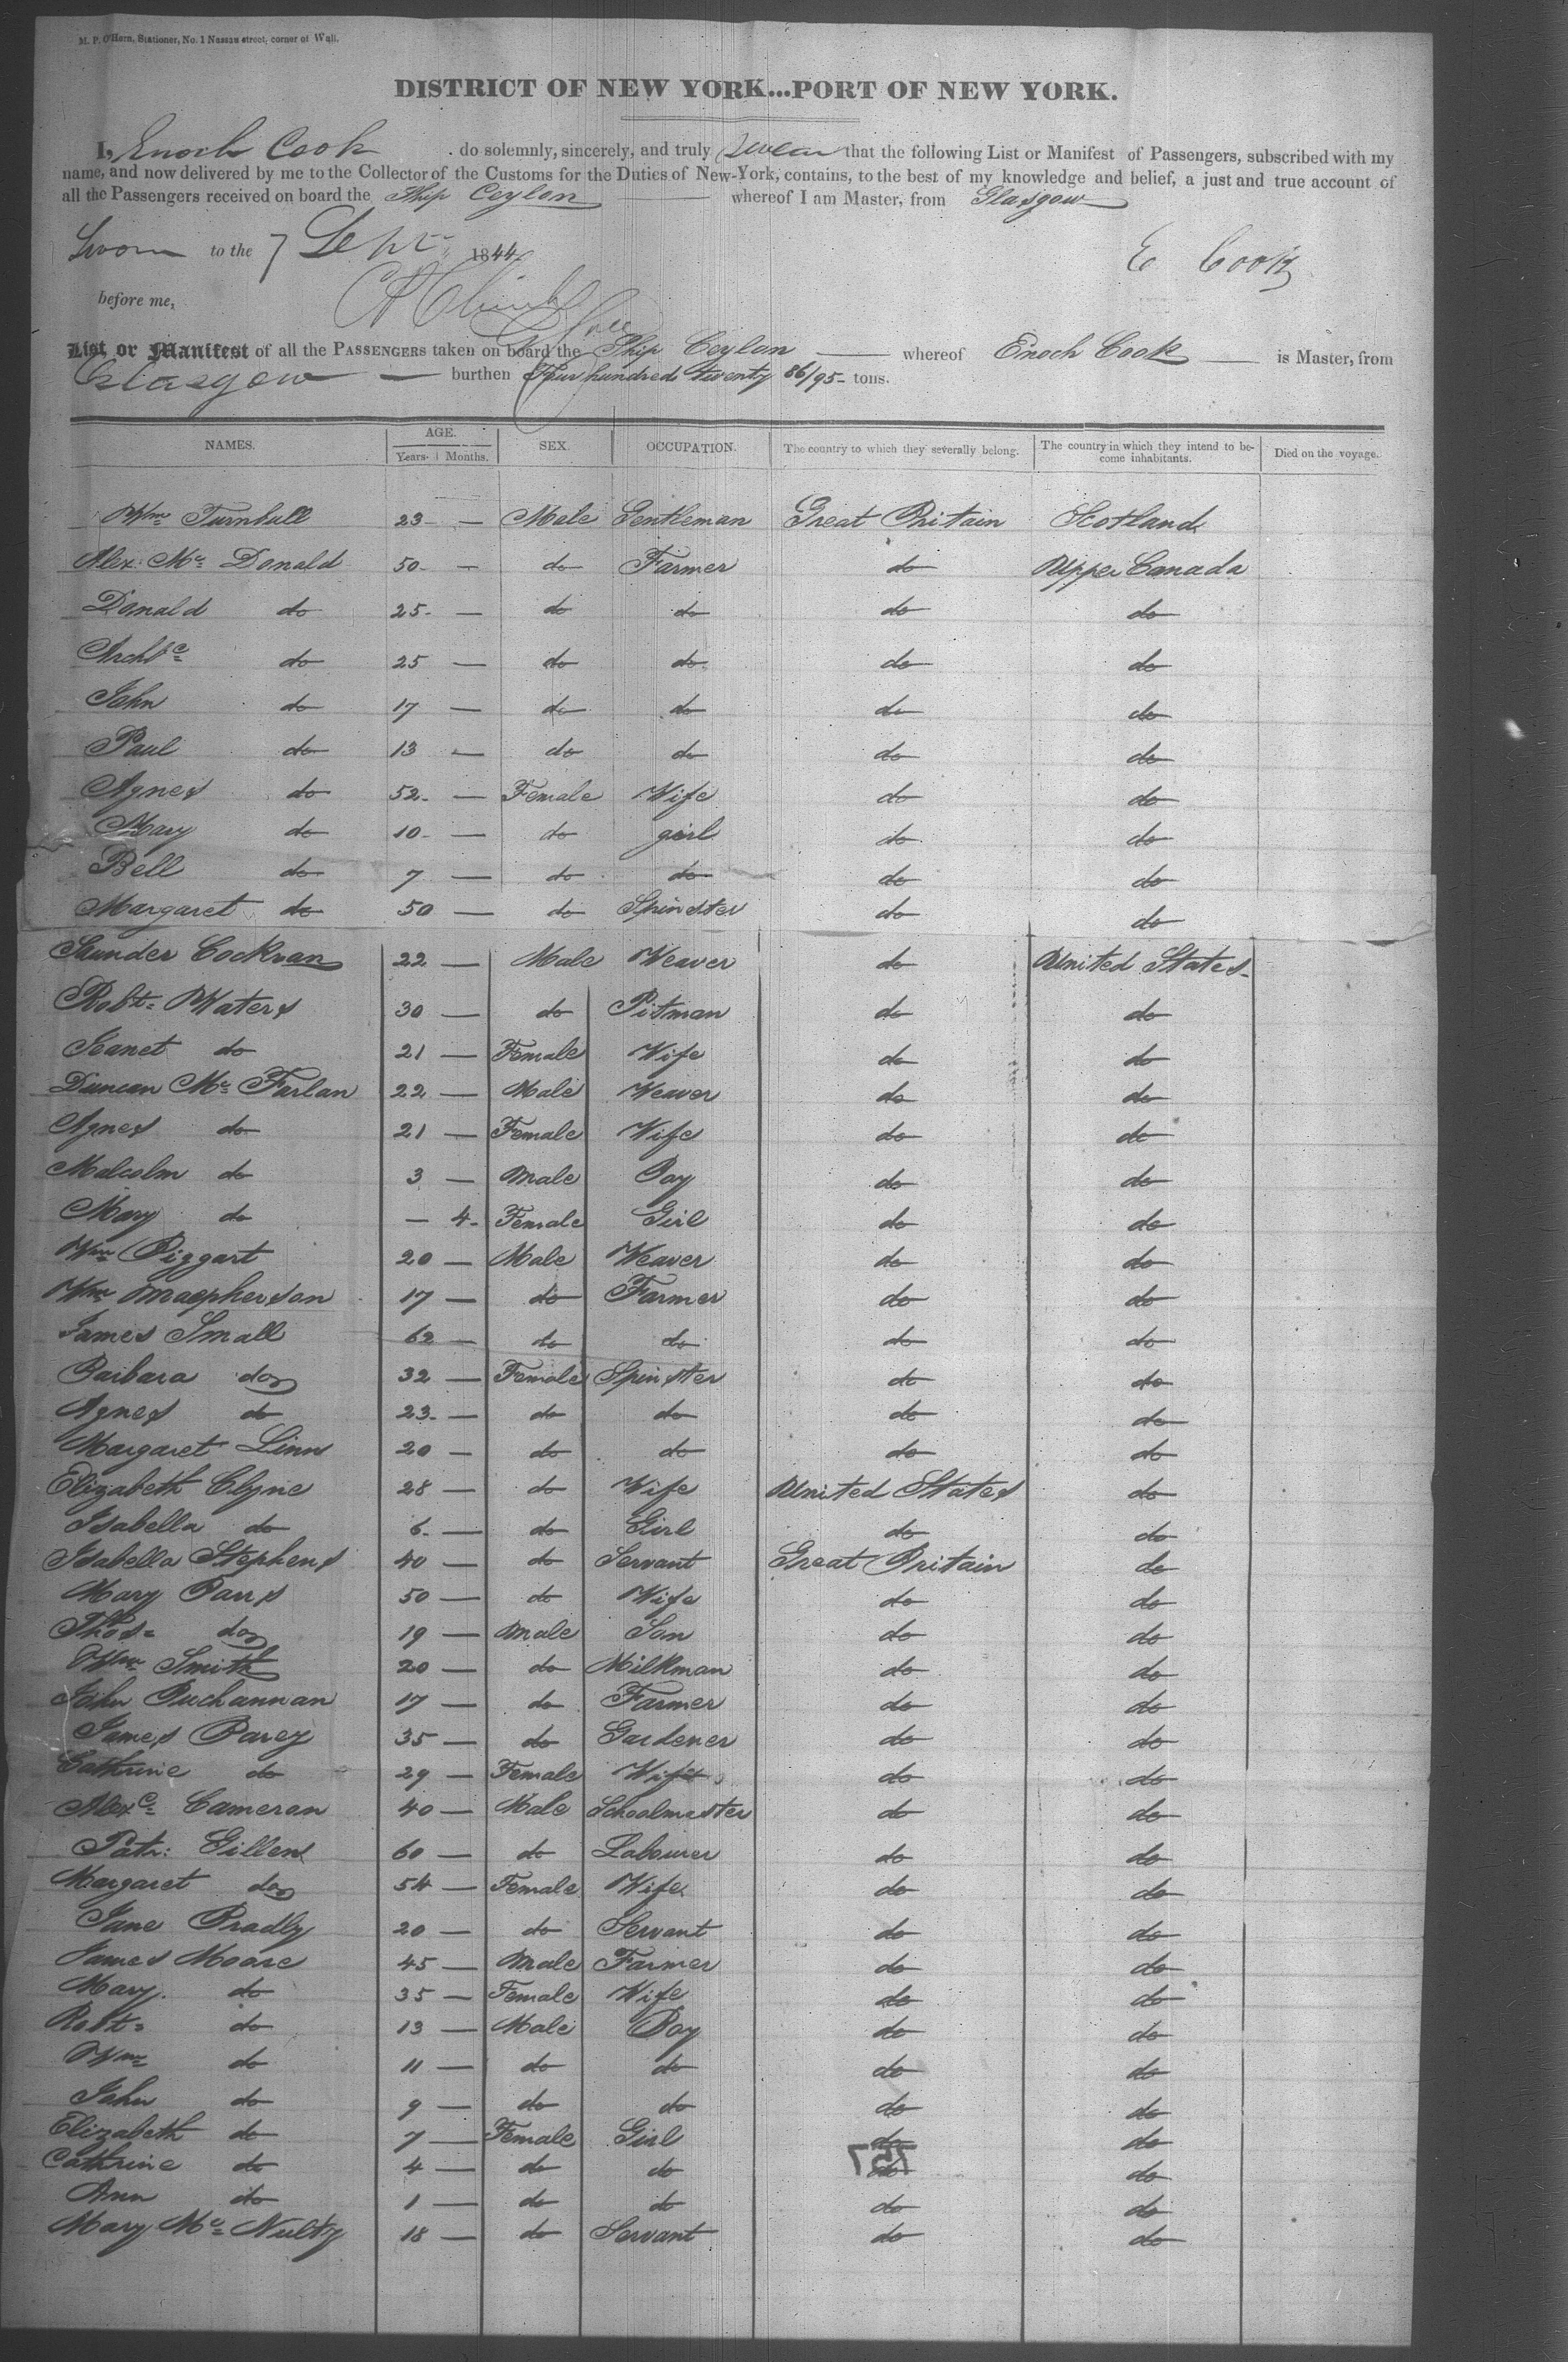 M. P. O'Hern, Stationer, No. 1 Nassau street, corner of Wall.
DISTRICT OF NEW YORK...PORT OF NEW YORK.
I, Enoch Cook do solemnly, sincerely, and truly swear that the following List or Manifest of Passengers, subscribed with my
name, and now delivered by me to the Collector of the Customs for the Duties of New-York, contains, to the best of my knowledge and belief, a just and true account of
all the Passengers received on board the Ship Ceylon whereof I am Master, from Glasgow
Sworn to the 7 Sept 1844 E Cook
before me,
List or Manifest of all the PASSENGERS taken on board the Ship Ceylon whereof Enoch Cook is Master, from
Glasgow burthen Four hundred twenty 86/95 tons.
NAMES. AGE. Years. Months. SEX. OCCUPATION. The country to which they severally belong. The country in which they intend to become inhabitants. Died on the voyage.
Wm Turnbull 23 — Male Gentleman Great Britain Scotland
Alex. Mc Donald 50 — do Farmer do Upper Canada
Donald do 25 — do do do do
Archd do 25 — do do do do
John do 17 — do do do do
Paul do 13 — do do do do
Agnes do 52 — Female Wife do do
Mary do 10 — do girl do do
Bell do 7 — do do do do
Margaret do 50 — do Spinster do do
Saunder Cockran 22 — Male Weaver do United States
Robt Waters 30 — do Pitman do do
Jeanet do 21 — Female Wife do do
Duncan Mc Farlan 22 — Male Weaver do do
Agnes do 21 — Female Wife do do
Malcolm do 3 — Male Boy do do
Mary do — 4 Female Girl do do
Wm Biggart 20 — Male Weaver do do
Wm Macpherson 17 — do Farmer do do
James Small 62 — do do do do
Barbara do 32 — Female Spinster do do
Agnes do 23 — do do do do
Margaret Linn 20 — do do do do
Elizabeth Clyne 28 — do Wife United States do
Isabella do 6 — do Girl do do
Isabella Stephens 40 — do Servant Great Britain do
Mary Barrs 50 — do Wife do do
Thos do 19 — Male Son do do
Wm Smith 20 — do Milkman do do
John Buchannan 17 — do Farmer do do
James Barey 35 — do Gardener do do
Cathrine do 29 — Female Wife do do
Alexr Cameron 40 — Male Schoolmaster do do
Patr: Gillen 60 — do Labourer do do
Margaret do 54 — Female Wife do do
Jane Bradly 20 — do Servant do do
James Moore 45 — Male Farmer do do
Mary do 35 — Female Wife do do
Robt do 13 — Male Boy do do
Wm do 11 — do do do do
John do 9 — do do do do
Elizabeth do 7 — Female Girl do do
Cathrine do 4 — do do do do
Ann do 1 — do do do do
Mary Mc Nulty 18 — do Servant do do